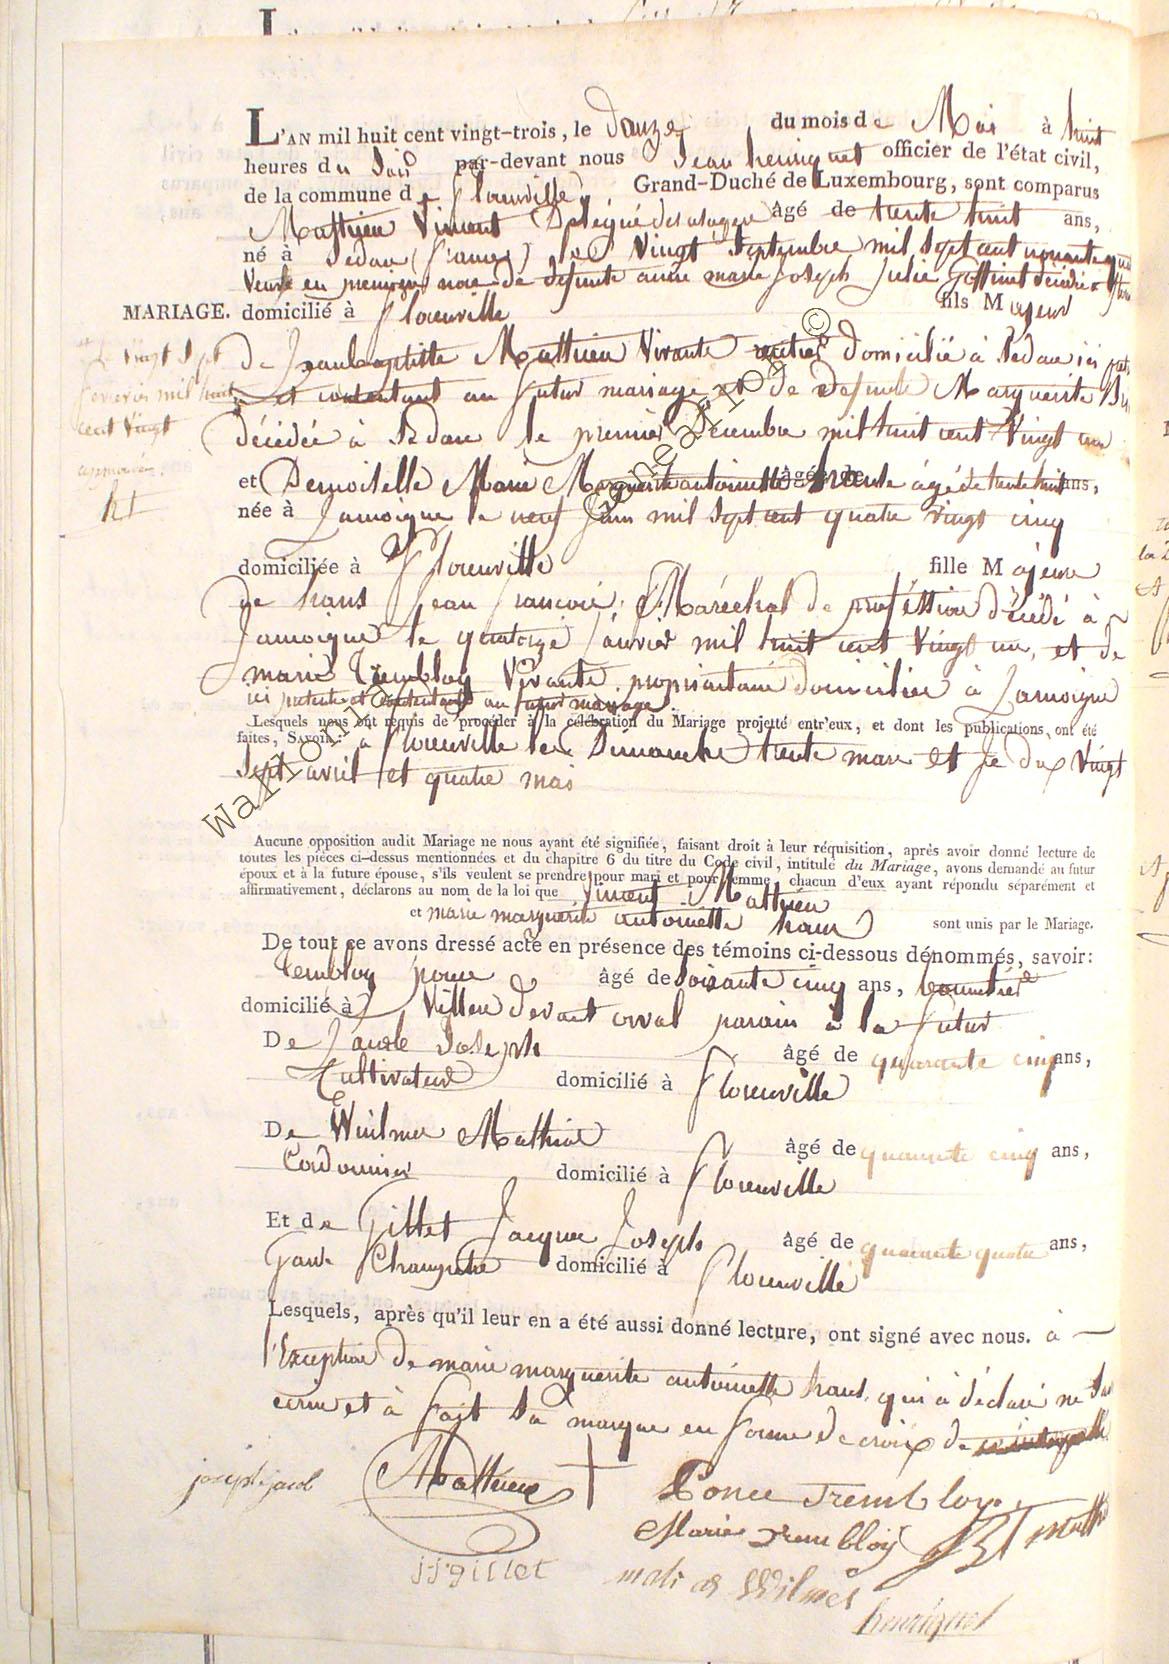 L'AN mil huit cent vingt-trois, le douze du mois de Mai à huit
heures du Soir par-devant nous Jean henriquet officier de l'état civil,
de la commune de florenville Grand-Duché de Luxembourg, sont comparus
Mathieu Vincent âgé de trente huit ans,
né à Sedan (france) le Vingt Septembre mil Sept cent
en de défunte anne marie Joseph Julie
MARIAGE. domicilié à florenville fils Majeur
de Jeanbaptiste Mathieu Vivante rentier domicilié à Sedan ici
vingt Sept
fevrier mil huit
cent Vingt
approuvé.
et au futur mariage et de defunte Marguerite
décédée à Sedan le premier Décembre mil huit cent Vingt un
et Demoiselle Marie Marguerite antoinette âgé de hans âgé de trente huit ans,
née à Jamoigne le neuf Juin mil Sept cent quatre vingt cinq
domiciliée à florenville fille Majeure
de hans Jean francois, Maréchal de profession décédé à
Jamoigne le quatorze Janvier mil huit cent Vingt un, et de
marie Trembloy Vivante propriaitaire domiciliée à Jamoigne
ici présente et au futur mariage.
Lesquels nous ont requis de procéder à la célébration du Mariage projetté entr'eux, et dont les publications ont été
faites, SAVOIR: à florenville le Dimanche trente mars et
Sept avril et quatre mai
Aucune opposition audit Mariage ne nous ayant été signifiée, faisant droit à leur réquisition, après avoir donné lecture de
toutes les pièces ci-dessus mentionnées et du chapitre 6 du titre du Code civil, intitulé du Mariage, avons demandé au futur
époux et à la future épouse, s'ils veulent se prendre pour mari et pour femme, chacun d'eux ayant répondu séparément et
affirmativement, déclarons au nom de la loi que Vincent Mathieu
et marie marguerite antoinette hans sont unis par le Mariage.
De tout ce avons dressé acte en présence des témoins ci-dessous dénommés, savoir:
Tembloy ponce âgé de Soixante cinq ans,
domicilié à Villers devant orval parain à la futur
De Jacob Joseph âgé de quarante cinq ans,
Cultivateur domicilié à florenville
De Wuilmes Mathias âgé de quarante cinq ans,
Cordonnier domicilié à florenville
Et de Gillet Jacques Joseph âgé de quarante quatre ans,
Garde Champetre domicilié à florenville
Lesquels, après qu'il leur en a été aussi donné lecture, ont signé avec nous. à
l'Exception de marie marguerite antoinette hans, qui à déclaré ne
ecrire et à fait Sa marque en forme de croix de
joseph jacob Mathieu Ponce Trembloy
Marie Trembloy
j-j-gillet Wilmes
henriquet
WallonGenealogy ©